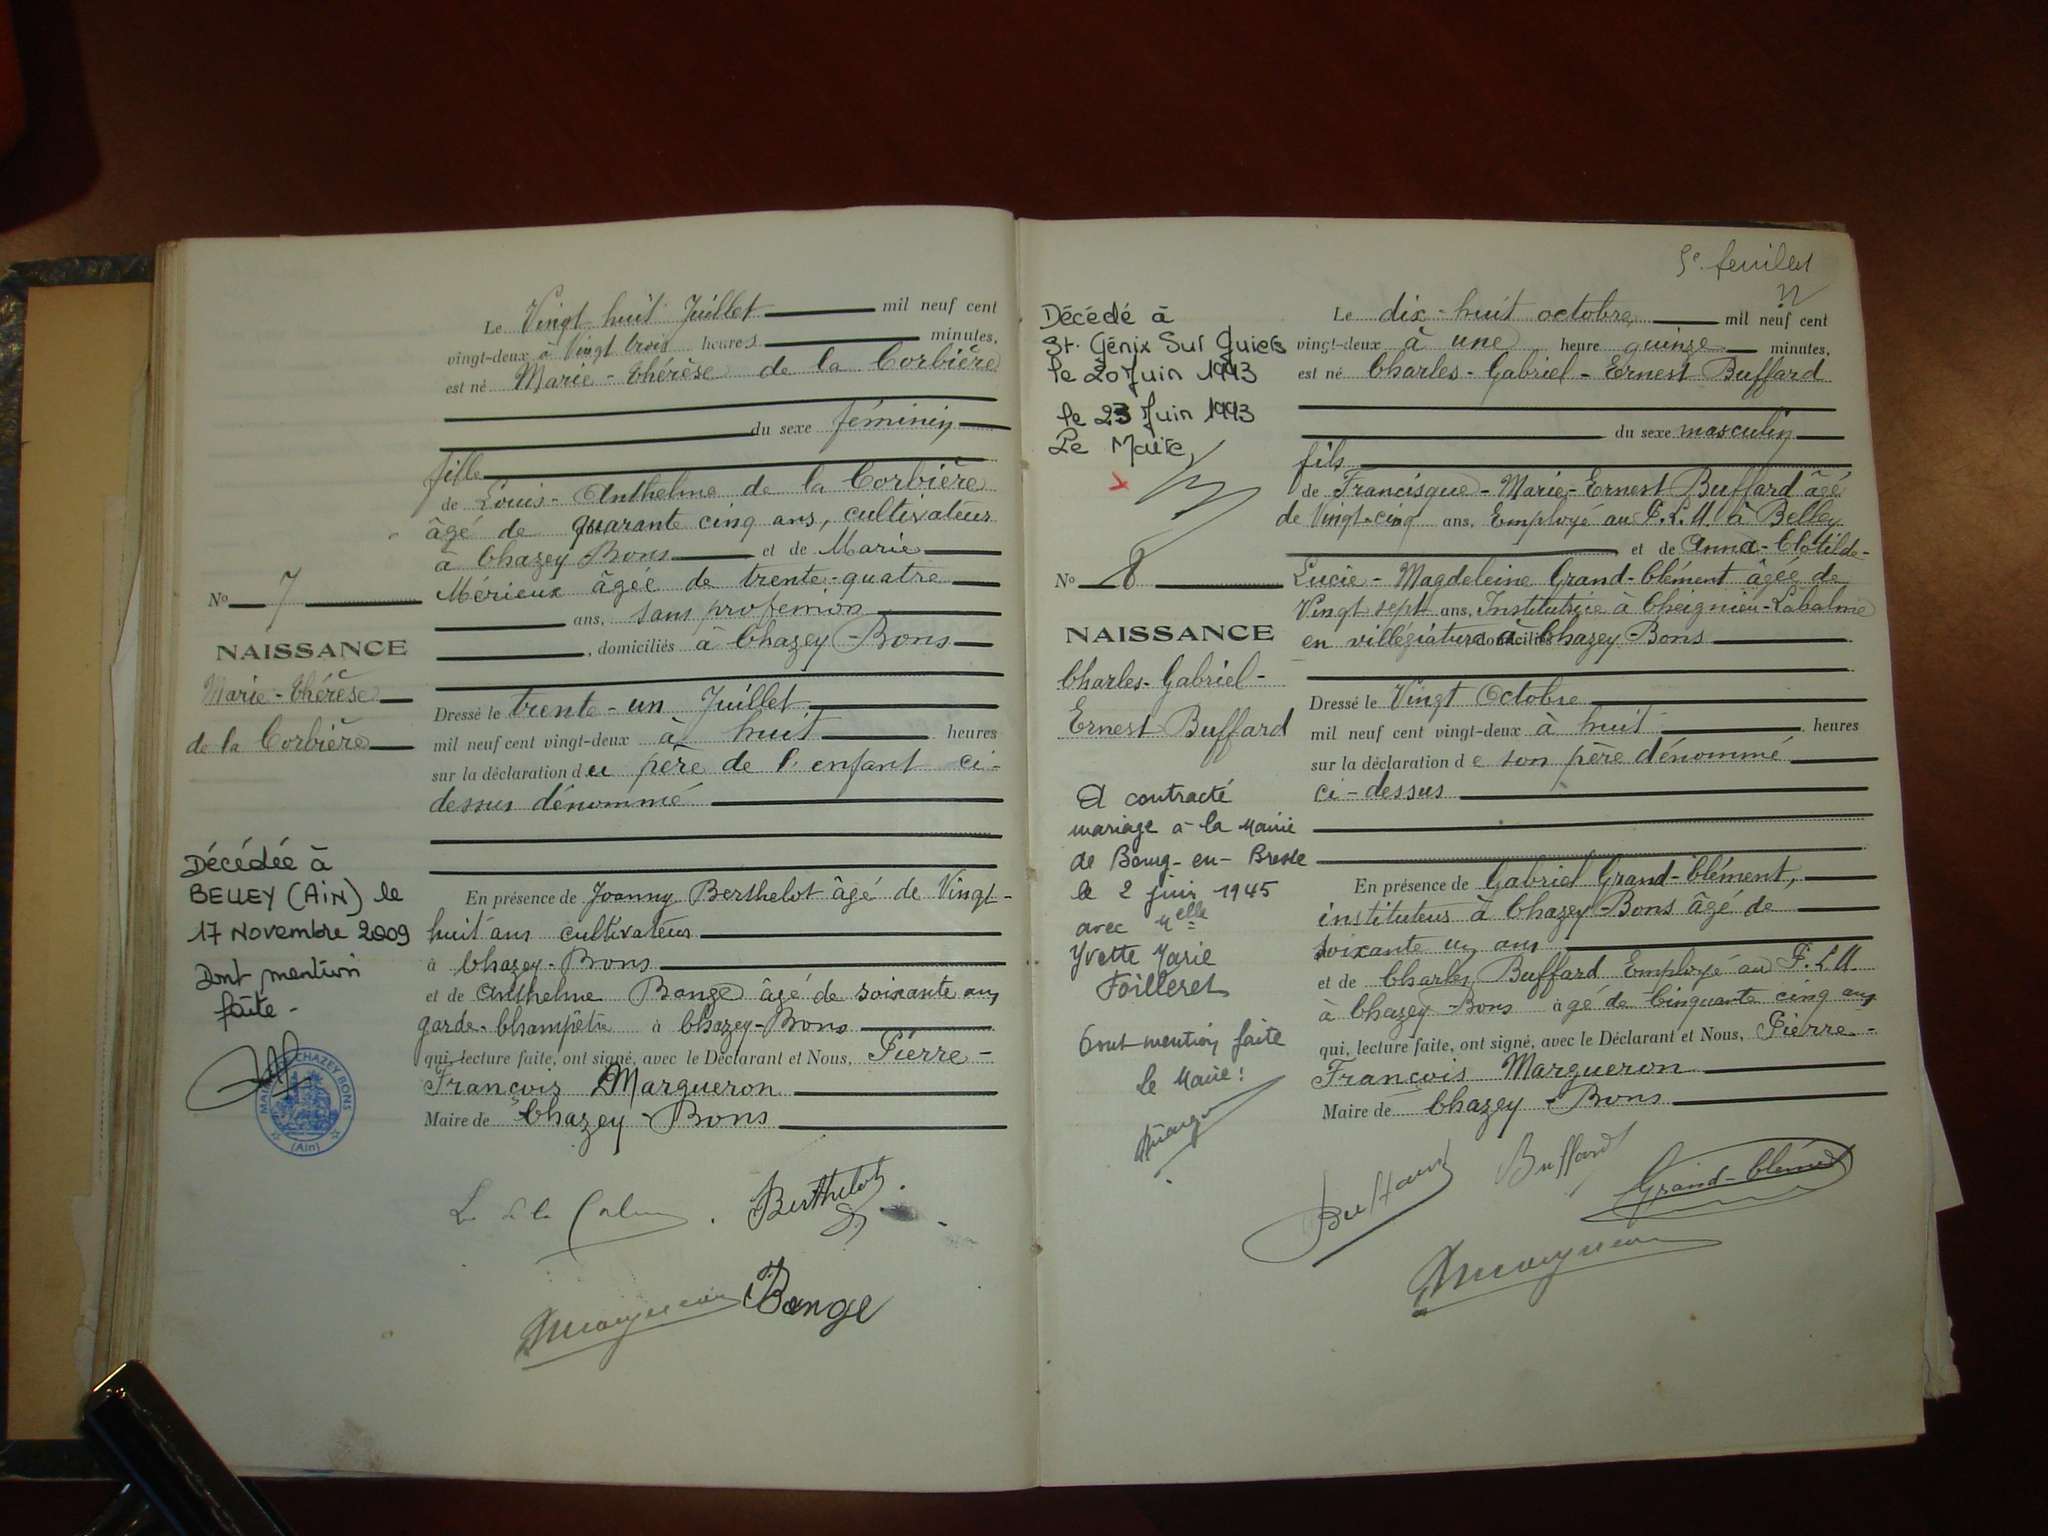 Le Vingt huit Juillet mil neuf cent
vingt-deux à Vingt trois heures minutes,
est né Marie-Thérèse de la Corbière
du sexe féminin
fille
de Louis-Anthelme de la Corbière
âgé de quarante cinq ans, cultivateur
à Chazey Bons et de Marie
Mérieux âgée de trente-quatre
ans, sans profession
, domiciliés à Chazey-Bons
Dressé le trente-un Juillet
mil neuf cent vingt-deux à huit heures
sur la déclaration du père de l'enfant ci-
dessus dénommé
En présence de Joanny Berthelot âgé de Vingt-
huit ans cultivateur
à Chazey-Bons
et de Anthelme Bange âgé de soixante ans
garde-Champêtre à Chazey-Bons
qui, lecture faite, ont signé, avec le Déclarant et Nous, Pierre-
François Margueron
Maire de Chazey-Bons
Berthelot
Bange
No 7
NAISSANCE
Marie-Thérèse
de la Corbière
Décédée à
BELLEY (Ain) le
17 Novembre 2009
Dont mention
faite -
MAIRIE CHAZEY BONS
(Ain)
5e feuillet
Le dix-huit octobre mil neuf cent
vingt-deux à une heure quinze minutes,
est né Charles-Gabriel-Ernest Buffard
du sexe masculin
fils
de Francisque-Marie-Ernest Buffard âgé
de Vingt-cinq ans, Employé au P.L.M. à Belley
et de Anna-Clotilde-
Lucie-Magdeleine Grand-Clément âgée de
Vingt sept ans, Institutrice à Cheignieu-Labalme
en villégiature domiciliés à Chazey-Bons
Dressé le Vingt Octobre
mil neuf cent vingt-deux à huit heures
sur la déclaration de son père dénommé
ci-dessus
En présence de Gabriel Grand-Clément,
instituteur à Chazey-Bons âgé de
soixante un ans
et de Charles Buffard Employé au P.L.M.
à Chazey-Bons âgé de Cinquante cinq ans
qui, lecture faite, ont signé, avec le Déclarant et Nous, Pierre-
François Margueron
Maire de Chazey-Bons
Buffard
Buffard
Grand-Clément
Décédé à
St. Génix Sur Guiers
le 20 Juin 1993
le 23 Juin 1993
Le Maire,
No 8
NAISSANCE
Charles-Gabriel-
Ernest Buffard
A contracté
mariage à la Mairie
de Bourg-en-Bresse
le 2 juin 1945
avec Melle
Yvette Marie
Foilleret
Dont mention faite
le Maire: